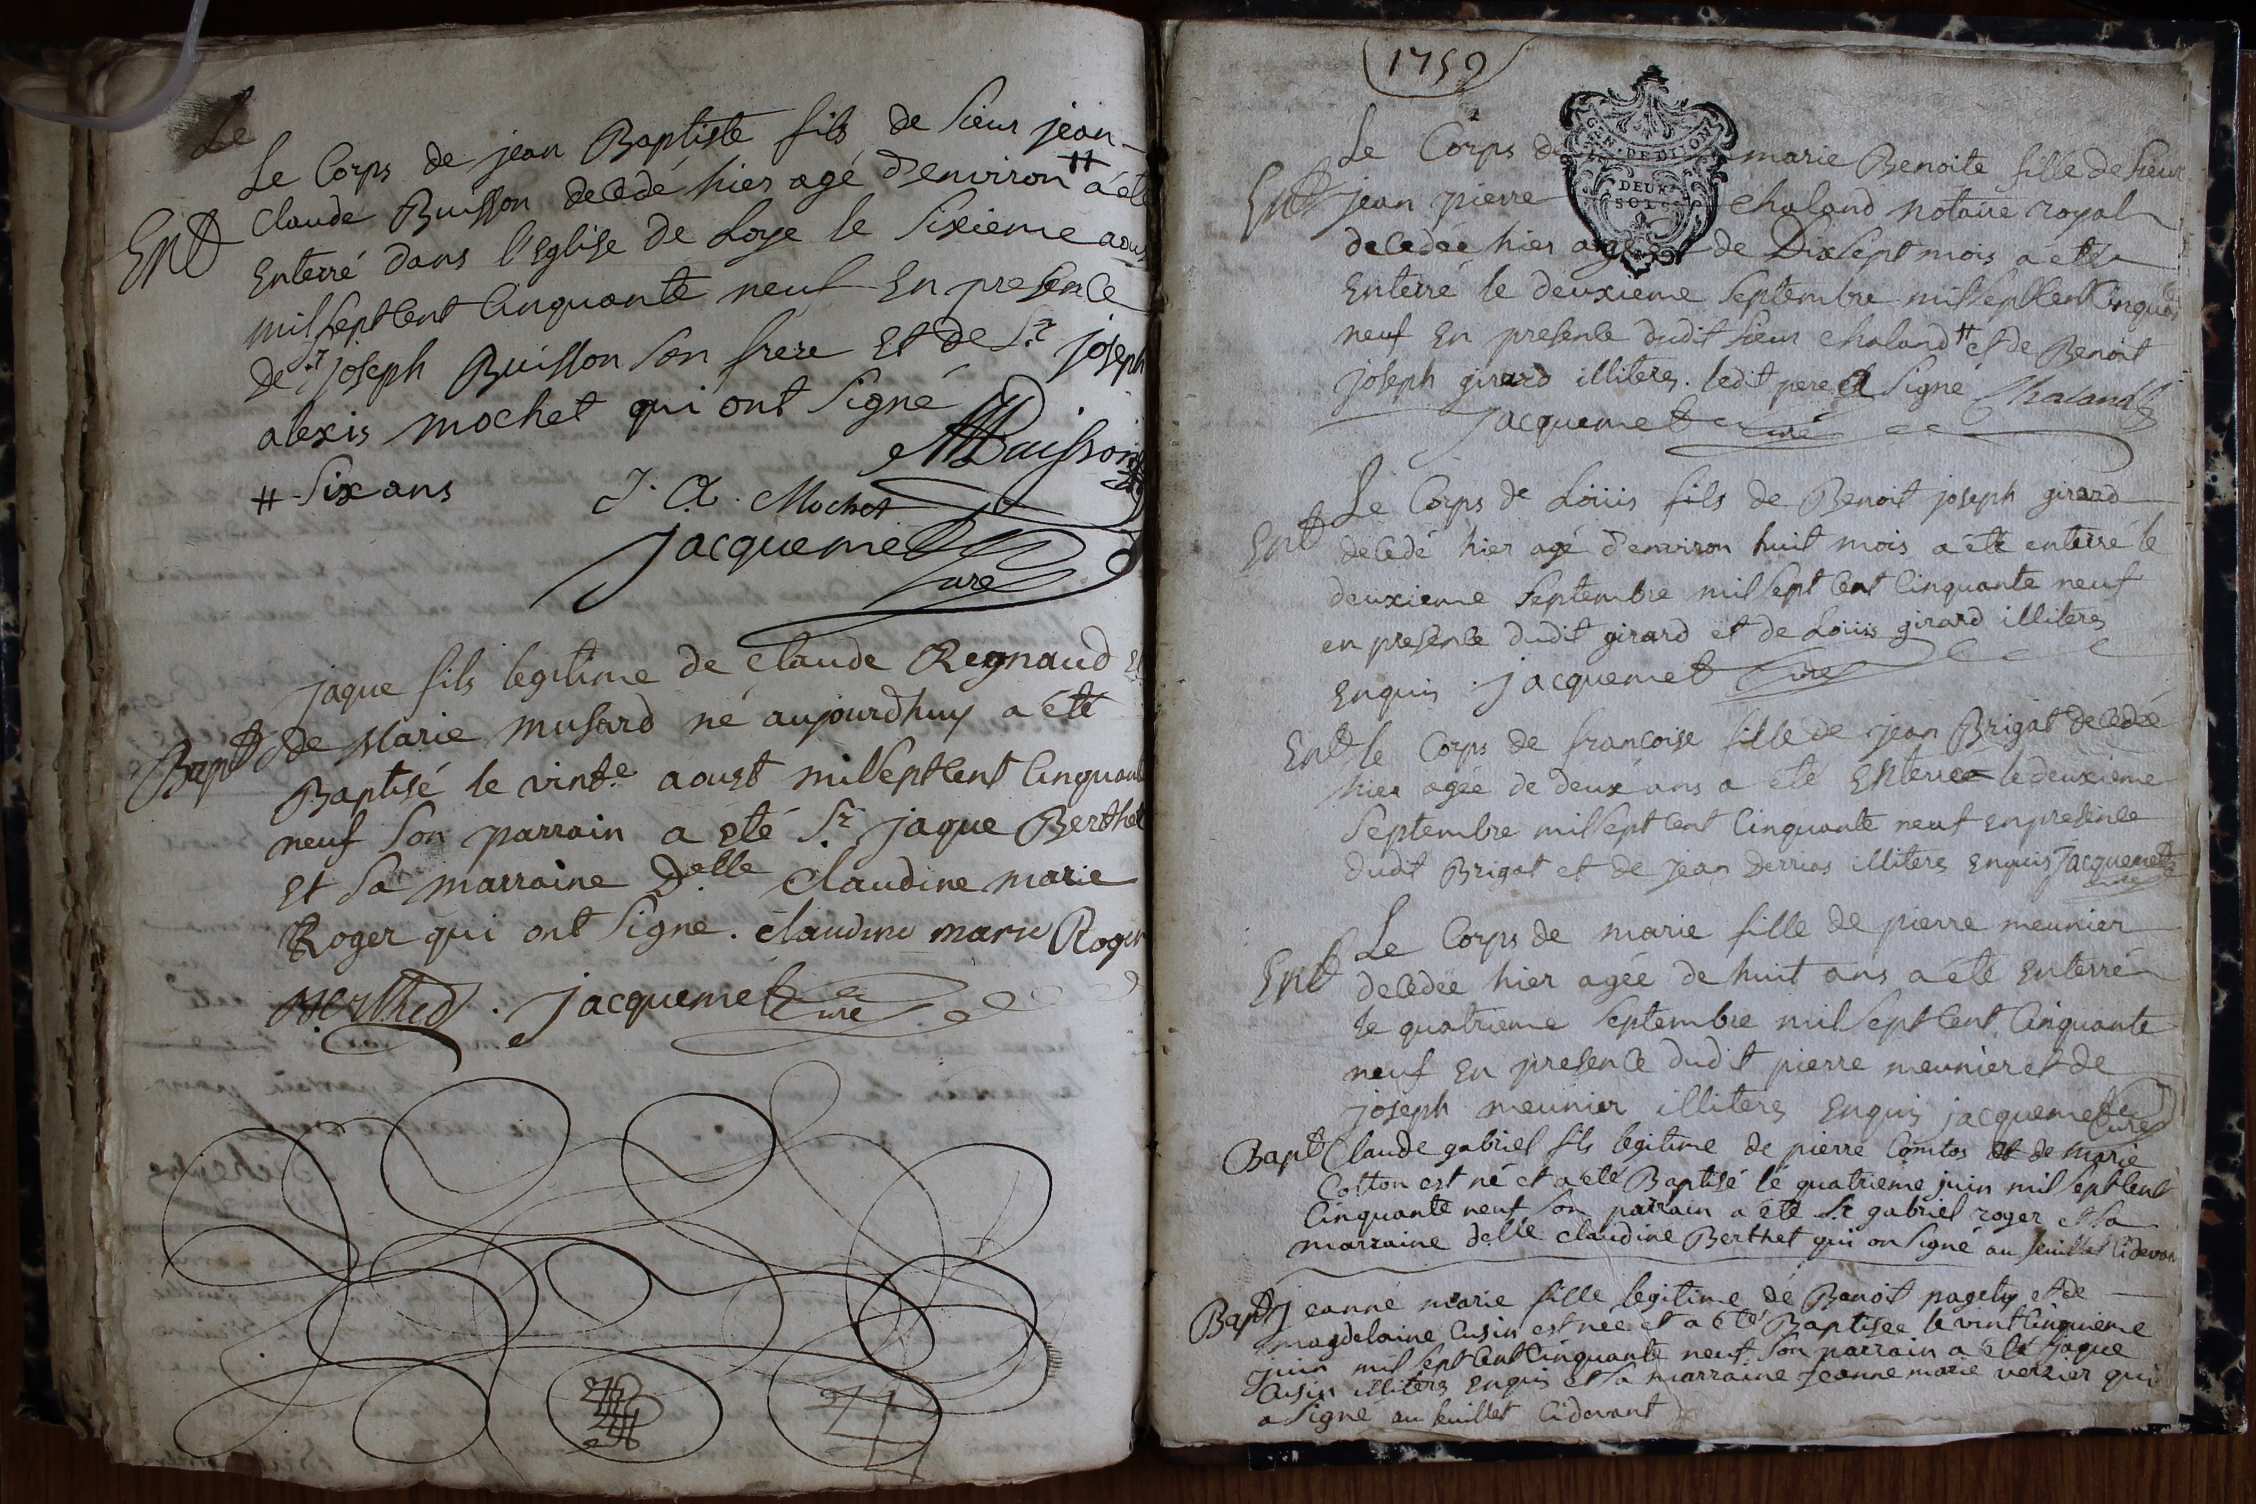 Le
Le Corps de jean Baptiste fils de Sieur jean
Claude Buisson decedé hier agé d'environ # a été
Ent
Enterré dans l'Eglise de Loye le Sixieme aous
mil sept Cent Cinquante neuf En presence
de Sr joseph Buisson son frere Et de Sr joseph
alexis mochet qui ont Signé
Buisson
# Six ans J. A. Mochet
Jacquemet
Curé
jaque fils legitime de Claude Regnaud Et
Bapt de Marie musard né aujourdhuy a été
Baptisé le vint.e aoust mil sept Cent Cinquante
neuf Son parrain a eté Sr jaque Berthet
Et Sa marraine Delle Claudine marie
Roger qui ont Signe. Claudine marie Roger
Berthet . Jacquemet Curé
1759
GEN. DE DIJON
DEUX
SOLS
Le Corps de marie Benoite fille de Sieur
Ent jean pierre Chaland notaire royal
decedée hier agée de Dix sept mois a été
Enterré le deuxieme Septembre mil sept Cent Cinquan
neuf En presence dudit Sieur Chaland # et de Benoit
joseph girard illiteres. ledit pere a Signé Chaland
Jacquemet Curé
Le Corps de Loüis fils de Benoit joseph girard
Ent decedé hier agé d'environ huit mois a été enterré le
deuxieme Septembre mil sept Cent Cinquante neuf
en presence dudit girard et de Loüis girard illiteres
Enquis . Jacquemet Curé
Ent le Corps de francoise fille de jean Brigat decedée
hier agée de deux ans a eté Enterrée le deuxieme
Septembre mil sept Cent Cinquante neuf en presence
dudit Brigat et de jean Derrias illiteres Enquis Jacquemet
Curé
Le Corps de marie fille de pierre meunier
Ent decedée hier agée de huit ans a été Enterré
le quatrieme Septembre mil sept Cent Cinquante
neuf En presence dudit pierre meunier et de
joseph meunier illiteres Enquis jacquemet
Curé
Bapt Claude gabriel fils legitime de pierre Comtos et de marie
Cotton est né et a eté Baptisé le quatrieme juin mil sept Cent
Cinquante neuf Son parrain a été Sr gabriel roger et Sa
marraine delle Claudine Berthet qui on Signé au feuillet Cidevan
Bapt Jeanne marie fille legitime de Benoit pagety et de
magdelaine Cusin est nee et a été Baptisee le vint Cinquieme
juin mil sept Cent Cinquante neuf Son parrain a été jaque
Cusin illiteres Enquis et Sa marraine Jeanne marie verzier qui
a Signé au feuillet Cidevant